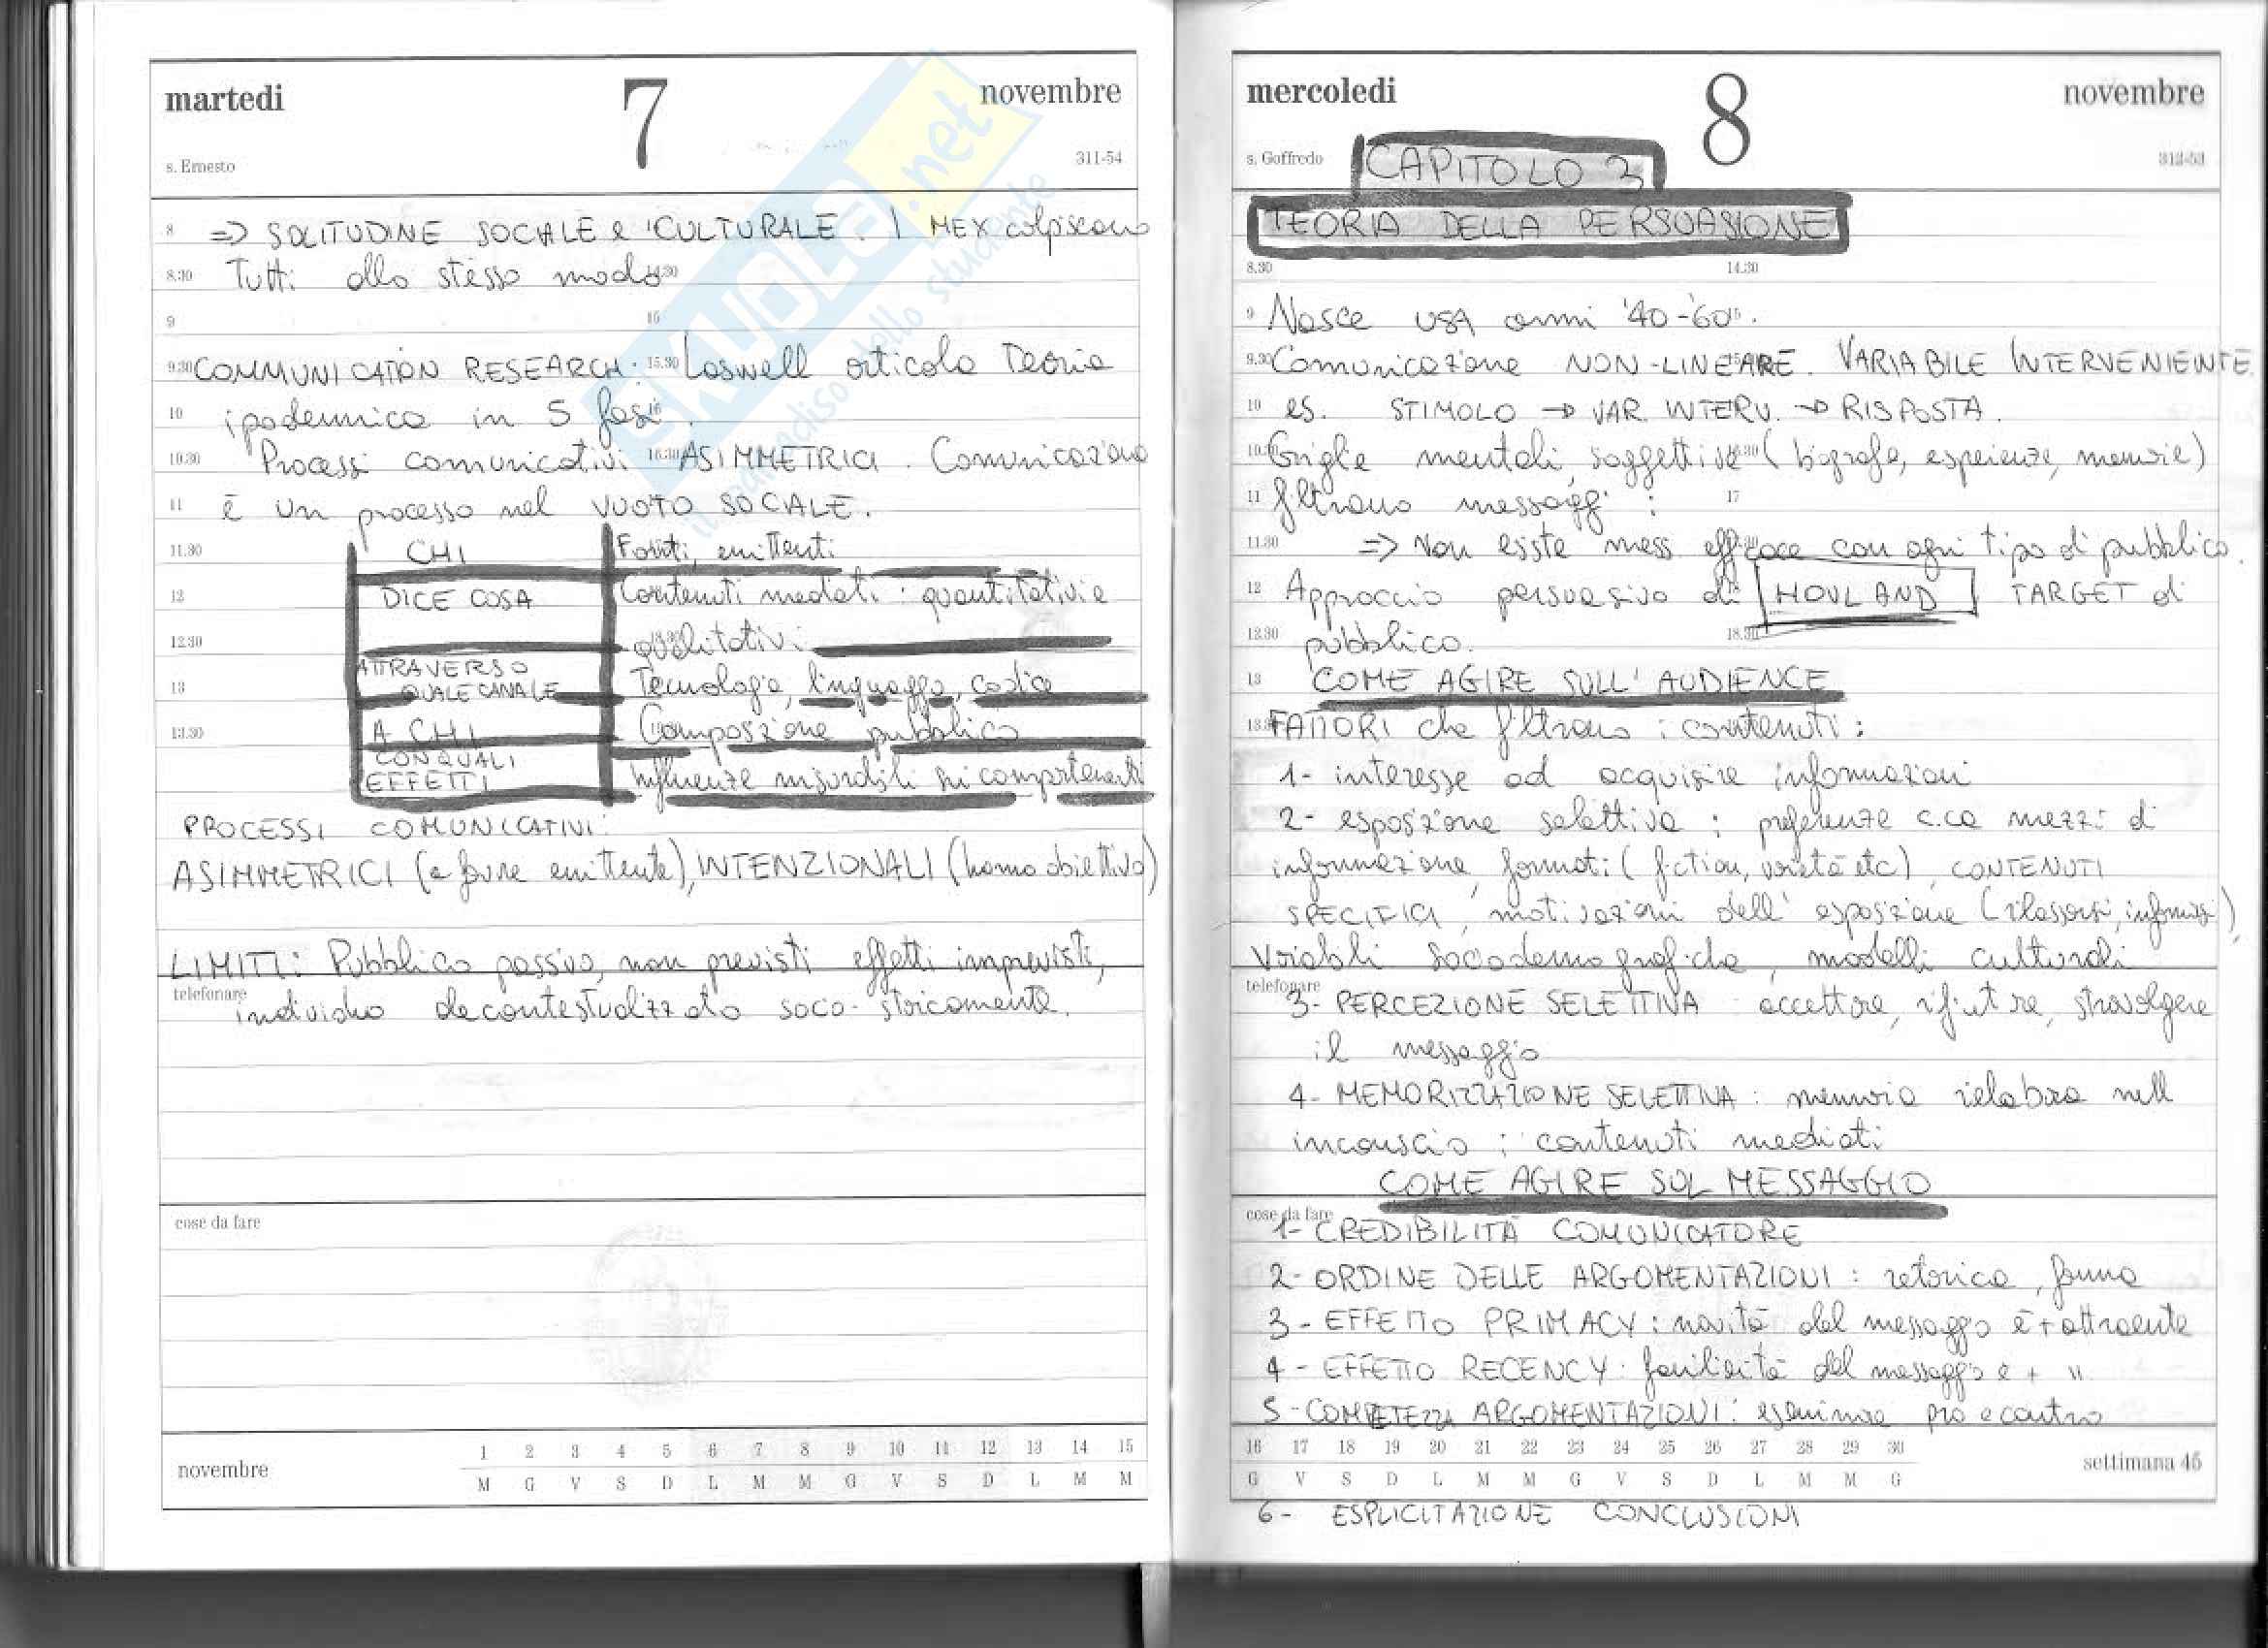 martedi 7 novembre
s. Ernesto 311-54
8 => SOLITUDINE SOCIALE e CULTURALE. I MEX colpiscono
8.30 Tutti allo stesso modo 14.30
9 15
9.30 COMMUNICATION RESEARCH. 15.30 Laswell articola Teoria
10 ipodermica in 5 fasi. 16
10.30 Processi comunicativi 16.30 ASIMMETRICI. Comunicazione
11 è un processo nel VUOTO SOCIALE.
11.30 CHI Fonti, emittenti
12 DICE COSA Contenuti mediati: quantitativi e
12.30 qualitativi 18.30
ATTRAVERSO
13 QUALE CANALE Tecnologia, linguaggio, codice
13.30 A CHI Composizione pubblico
CON QUALI
EFFETTI Influenze misurabili sui comportamenti
PROCESSI COMUNICATIVI:
ASIMMETRICI (a favore emittente), INTENZIONALI (hanno obiettivo)
LIMITI: Pubblico passivo, non previsti effetti imprevisti,
telefonare
individuo decontestualizzato socio-storicamente.
cose da fare
novembre 1 2 3 4 5 6 7 8 9 10 11 12 13 14 15
M G V S D L M M G V S D L M M
SKUOLA.net
il paradiso dello studente
mercoledi 8 novembre
s. Goffredo CAPITOLO 3 312-53
TEORIA DELLA PERSUASIONE
8.30 14.30
9 Nasce USA anni '40-'60.
9.30 Comunicazione NON-LINEARE. VARIABILE INTERVENIENTE
10 es. STIMOLO → VAR. INTERV. → RISPOSTA.
10.30 Griglie mentali soggettive (biografie, esperienze, memorie)
11 filtrano messaggi: 17
11.30 => Non esiste mess efficace con ogni tipo di pubblico.
12 Approccio persuasivo di HOVLAND TARGET di
12.30 pubblico. 18.30
13 COME AGIRE SULL'AUDIENCE
13.30 FATTORI che filtrano i contenuti:
1- interesse ad acquisire informazioni
2- esposizione selettiva: preferenze c.ca mezzi di
informazione, formati (fiction, varietà etc), CONTENUTI
SPECIFICI, motivazioni dell'esposizione (rilassarsi, informarsi),
Variabili sociodemografiche, modelli culturali
telefonare
3- PERCEZIONE SELETTIVA: accettare, rifiutare, stravolgere
il messaggio
4- MEMORIZZAZIONE SELETTIVA: memoria rielabora nell
inconscio i contenuti mediati
COME AGIRE SUL MESSAGGIO
cose da fare
1- CREDIBILITÀ COMUNICATORE
2- ORDINE DELLE ARGOMENTAZIONI: retorica, forma
3- EFFETTO PRIMACY: novità del messaggio è + attraente
4- EFFETTO RECENCY: familiarità del messaggio è + "
5- COMPLETEZZA ARGOMENTAZIONI: esaminare pro e contro
16 17 18 19 20 21 22 23 24 25 26 27 28 29 30 settimana 45
G V S D L M M G V S D L M M G
6- ESPLICITAZIONE CONCLUSIONI